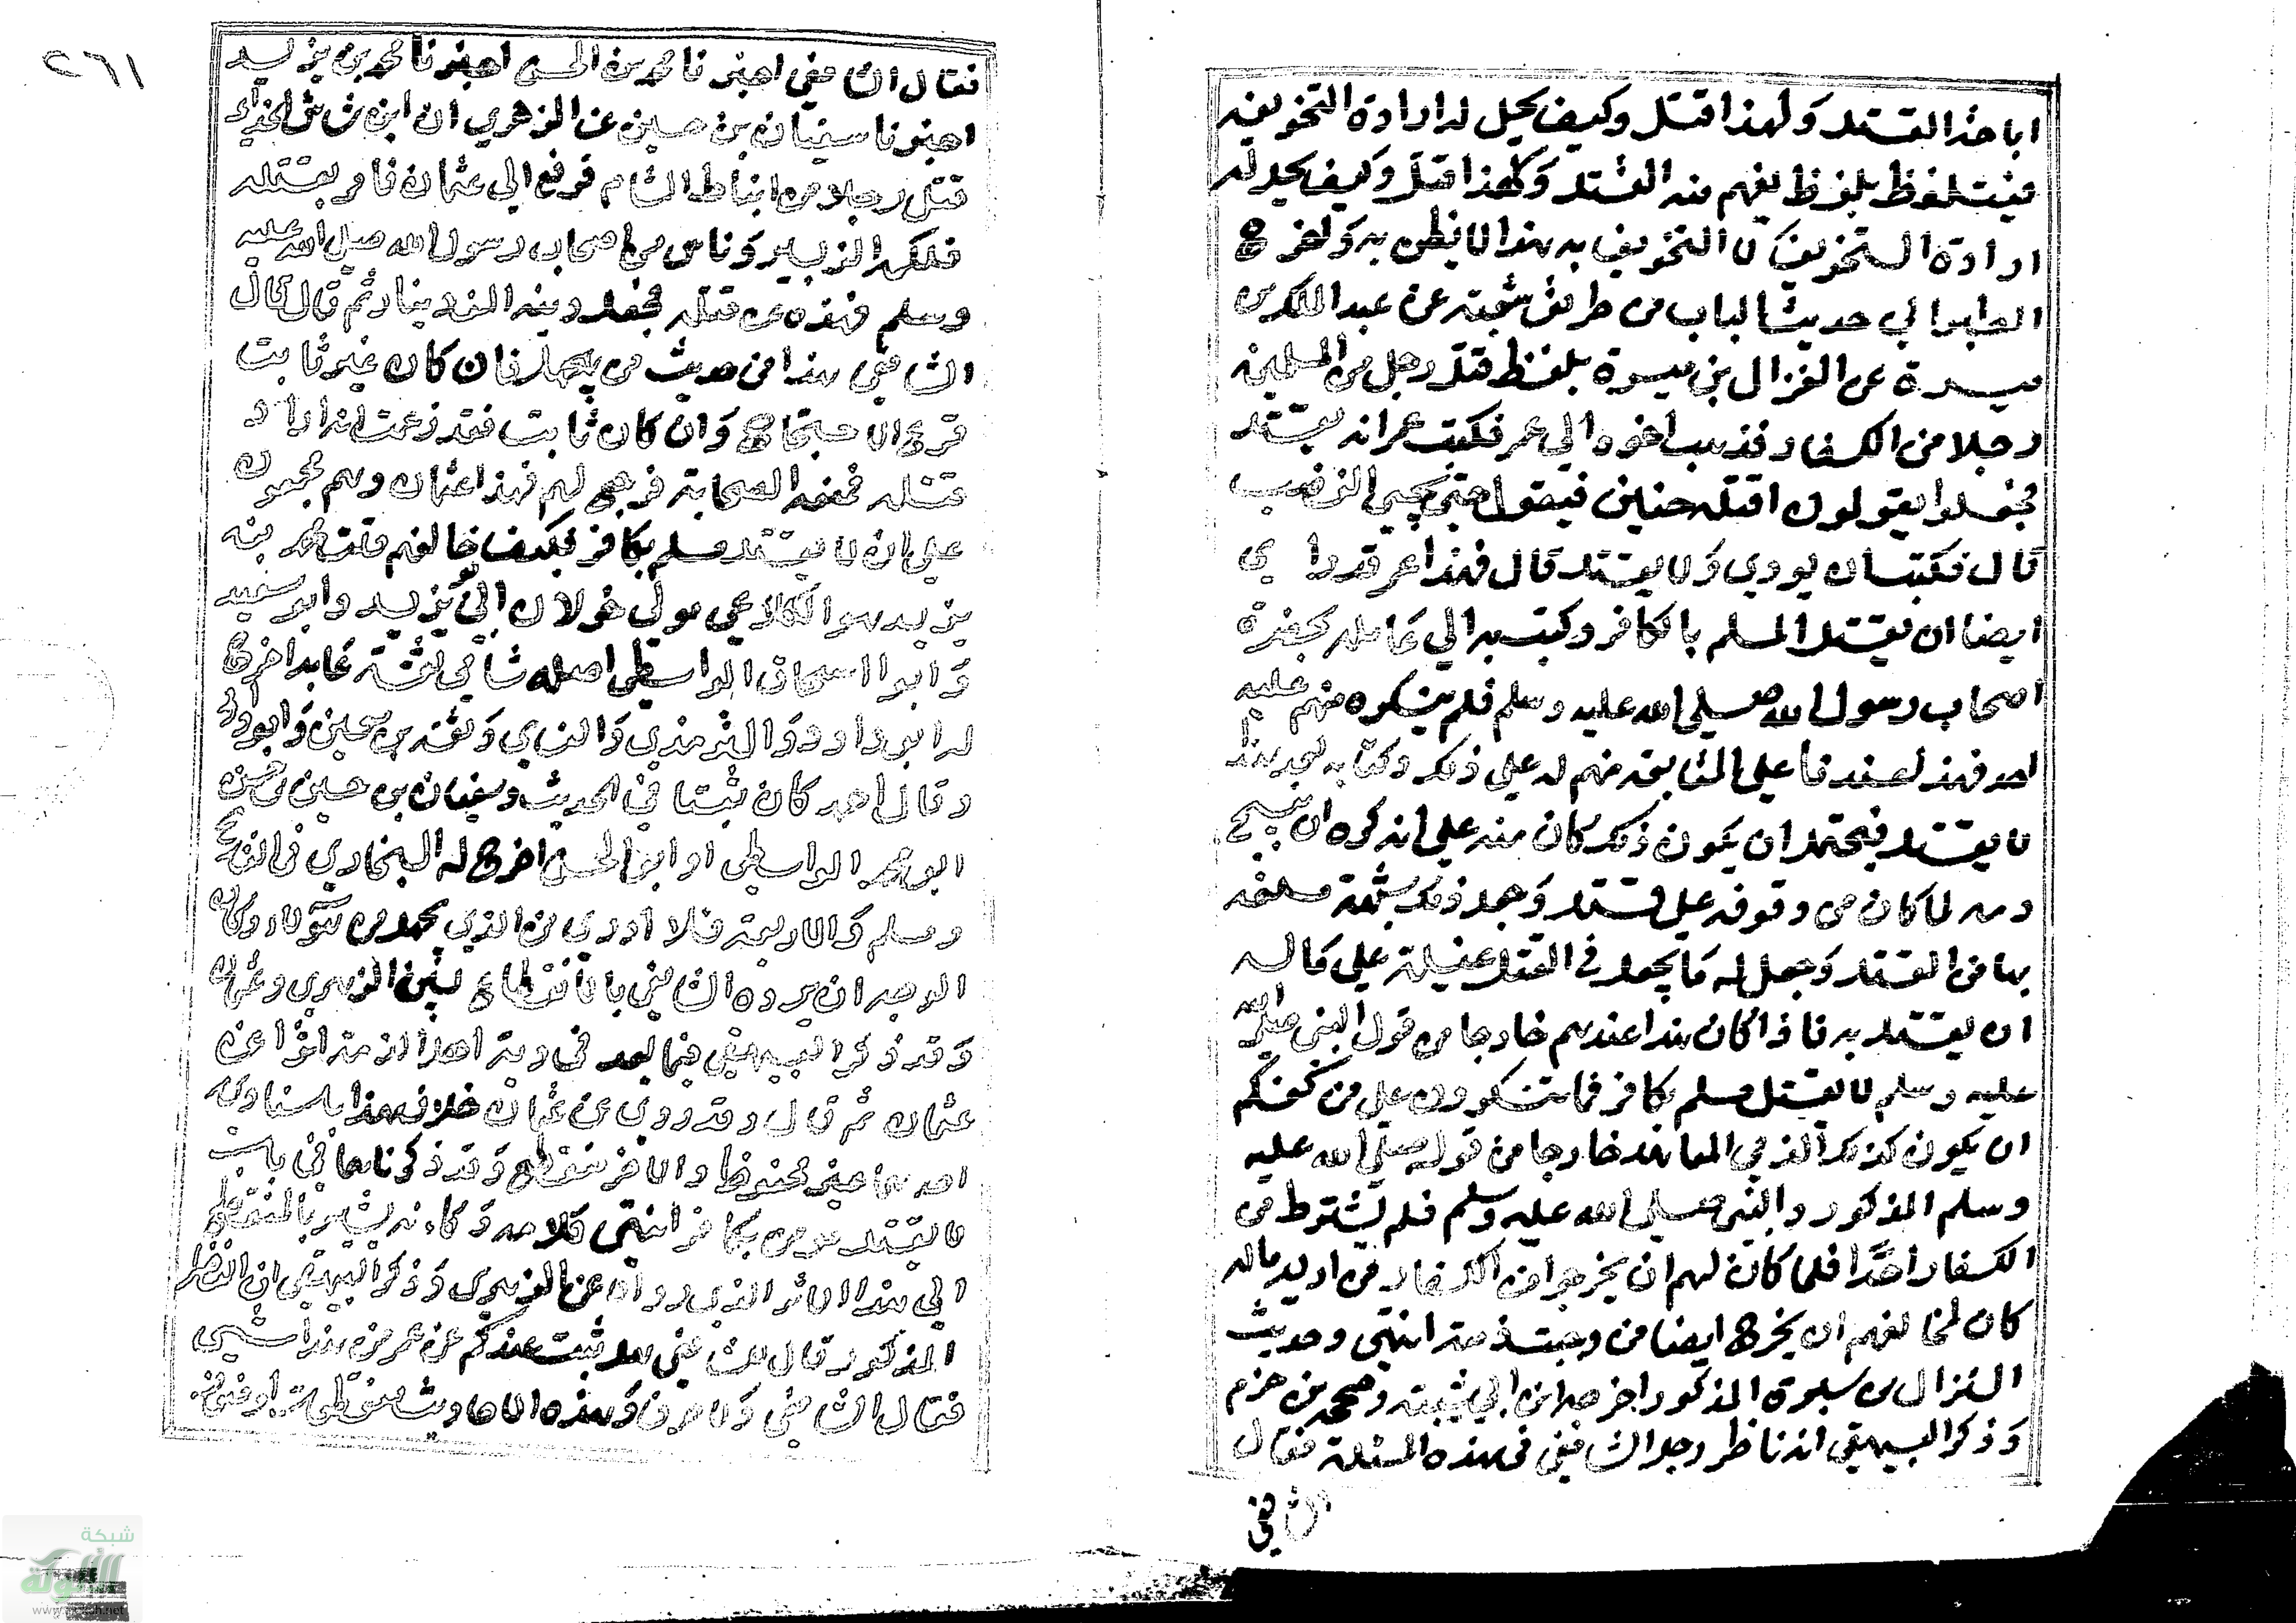 اباحة القتل ولهذا قتل وكيف يحل له ارادة التخويف
فيتلفظ بلفظ يفهم منه القتل ولهذا قتل وكيف يحل له
ارادة التخويف لا التخويف به هذا لا يظن به واخرج
الطبراني حديث الباب من طريق شعبة عن عبد الملك بن
ميسرة عن النزال بن سبرة بلفظ قتل رجل من المسلمين
رجلا من الكفار فذهب اخوه الي عمر فكتب عمر انه يقتل
فجعلوا يقولون اقتله حنين فيقول حتى يجي الغضب
قال فكتب ان يودي ولا يقتل قال فهذا عمر قد راي
ايضا ان يقتل المسلم بالكافر وكتب به الي عامله بحضرة
اصحاب رسول الله صلى الله عليه وسلم فلم ينكره منهم عليه
احد فهذا عندنا على المتابعة منهم له علي ذلك وكتابه بعد هذا
لا يقتل فيحتمل ان يكون ذلك كان منه علي انه كره ان يبيح
دمه لما كان من وقوفه علي قتله وجعل ذلك شبهة منعه
بها من القتل وجعل له ما يجعل في القتل
ان يقتل به فاذا كان هذا عندهم خارجا من قول النبي صلى الله
عليه وسلم لا يقتل مسلم بكافر فما تنكرون علي من خالفكم
ان يكون كذلك الذمي المعاهد خارجا من قوله صلى الله عليه
وسلم المذكور والنبي صلى الله عليه وسلم فلم يشترط من
الكفار احدًا فلما كان لهم ان يخرجوا من الكفار من اريد ماله
كان لمخالفهم ان يخرج ايضا من وجبت ذمته انتهى وحديث
النزال بن سبرة المذكور اخرجه ابن ابي شيبة وصححه بن حزم
وذكر البيهقي انه ناظر رجل الشافعي في هذه المسئلة فقال
الشافعي
٢٦١
فقال الشافعي اخبرنا محمد بن الحسن اخبرنا محمد بن يزيد
اخبرنا سفيان بن حسين عن الزهري ان ابن شاس الجذامي
قتل رجلا من انباط الشام فرفع الي عثمان فامر بقتله
فكلمه الزبير وناس من اصحاب رسول الله صلى الله عليه
وسلم فنهوه عن قتله فجعل ديته الف دينار ثم قال قال
الشافعي هذا من حديث من يجهل فان كان غير ثابت
فدع الاحتجاج وان كان ثابت فقد زعمت انه اراد
قتله فمنعه الصحابة فرجع لهم فهذا عثمان وهم مجمعون
علي ان لا يقتل مسلم بكافر فكيف خالفهم قلت محمد بن
يزيد هو الكلاعي مولي خولان ابي يزيد وابو سعيد
وابو اسحاق الواسطي اصله شامي ثقة عابد اخرج
له ابو داود والترمذي والنساي وثقه بن معين وابو داود
وقال احمد كان ثبتا في الحديث وسفيان بن حسين بن حسن
ابو محمد الواسطي او ابو الحسن اخرج له البخاري في التعاليق
ومسلم والاربعة فلا ادري من الذي يجهل من هؤلاء وكان
الوجه ان يرده الشافعي بالانقطاع بين الزهري وعثمان
وقد ذكر البيهقي فيما بعد في دية اهل الذمة اثرا عن
عثمان ثم قال وقد روي عن عثمان خلاف هذا باسنادين
احدهما غير محفوظ والاخر منقطع وقد ذكرناهما في باب
لا يقتل مومن بكافر انتهى كلامه وكانه يشير بالمنقطع
الي هذا الاثر الذي رواه عن الزهري وذكر البيهقي ان المناظر
المذكور قال للشافعي هل ثبت عندكم عن عمر من هذا شيي
فقال الشافعي ولا حرف وهذه الاحاديث منقطعة او ضعيفة
شبكة
الألوكة
www.alukah.net